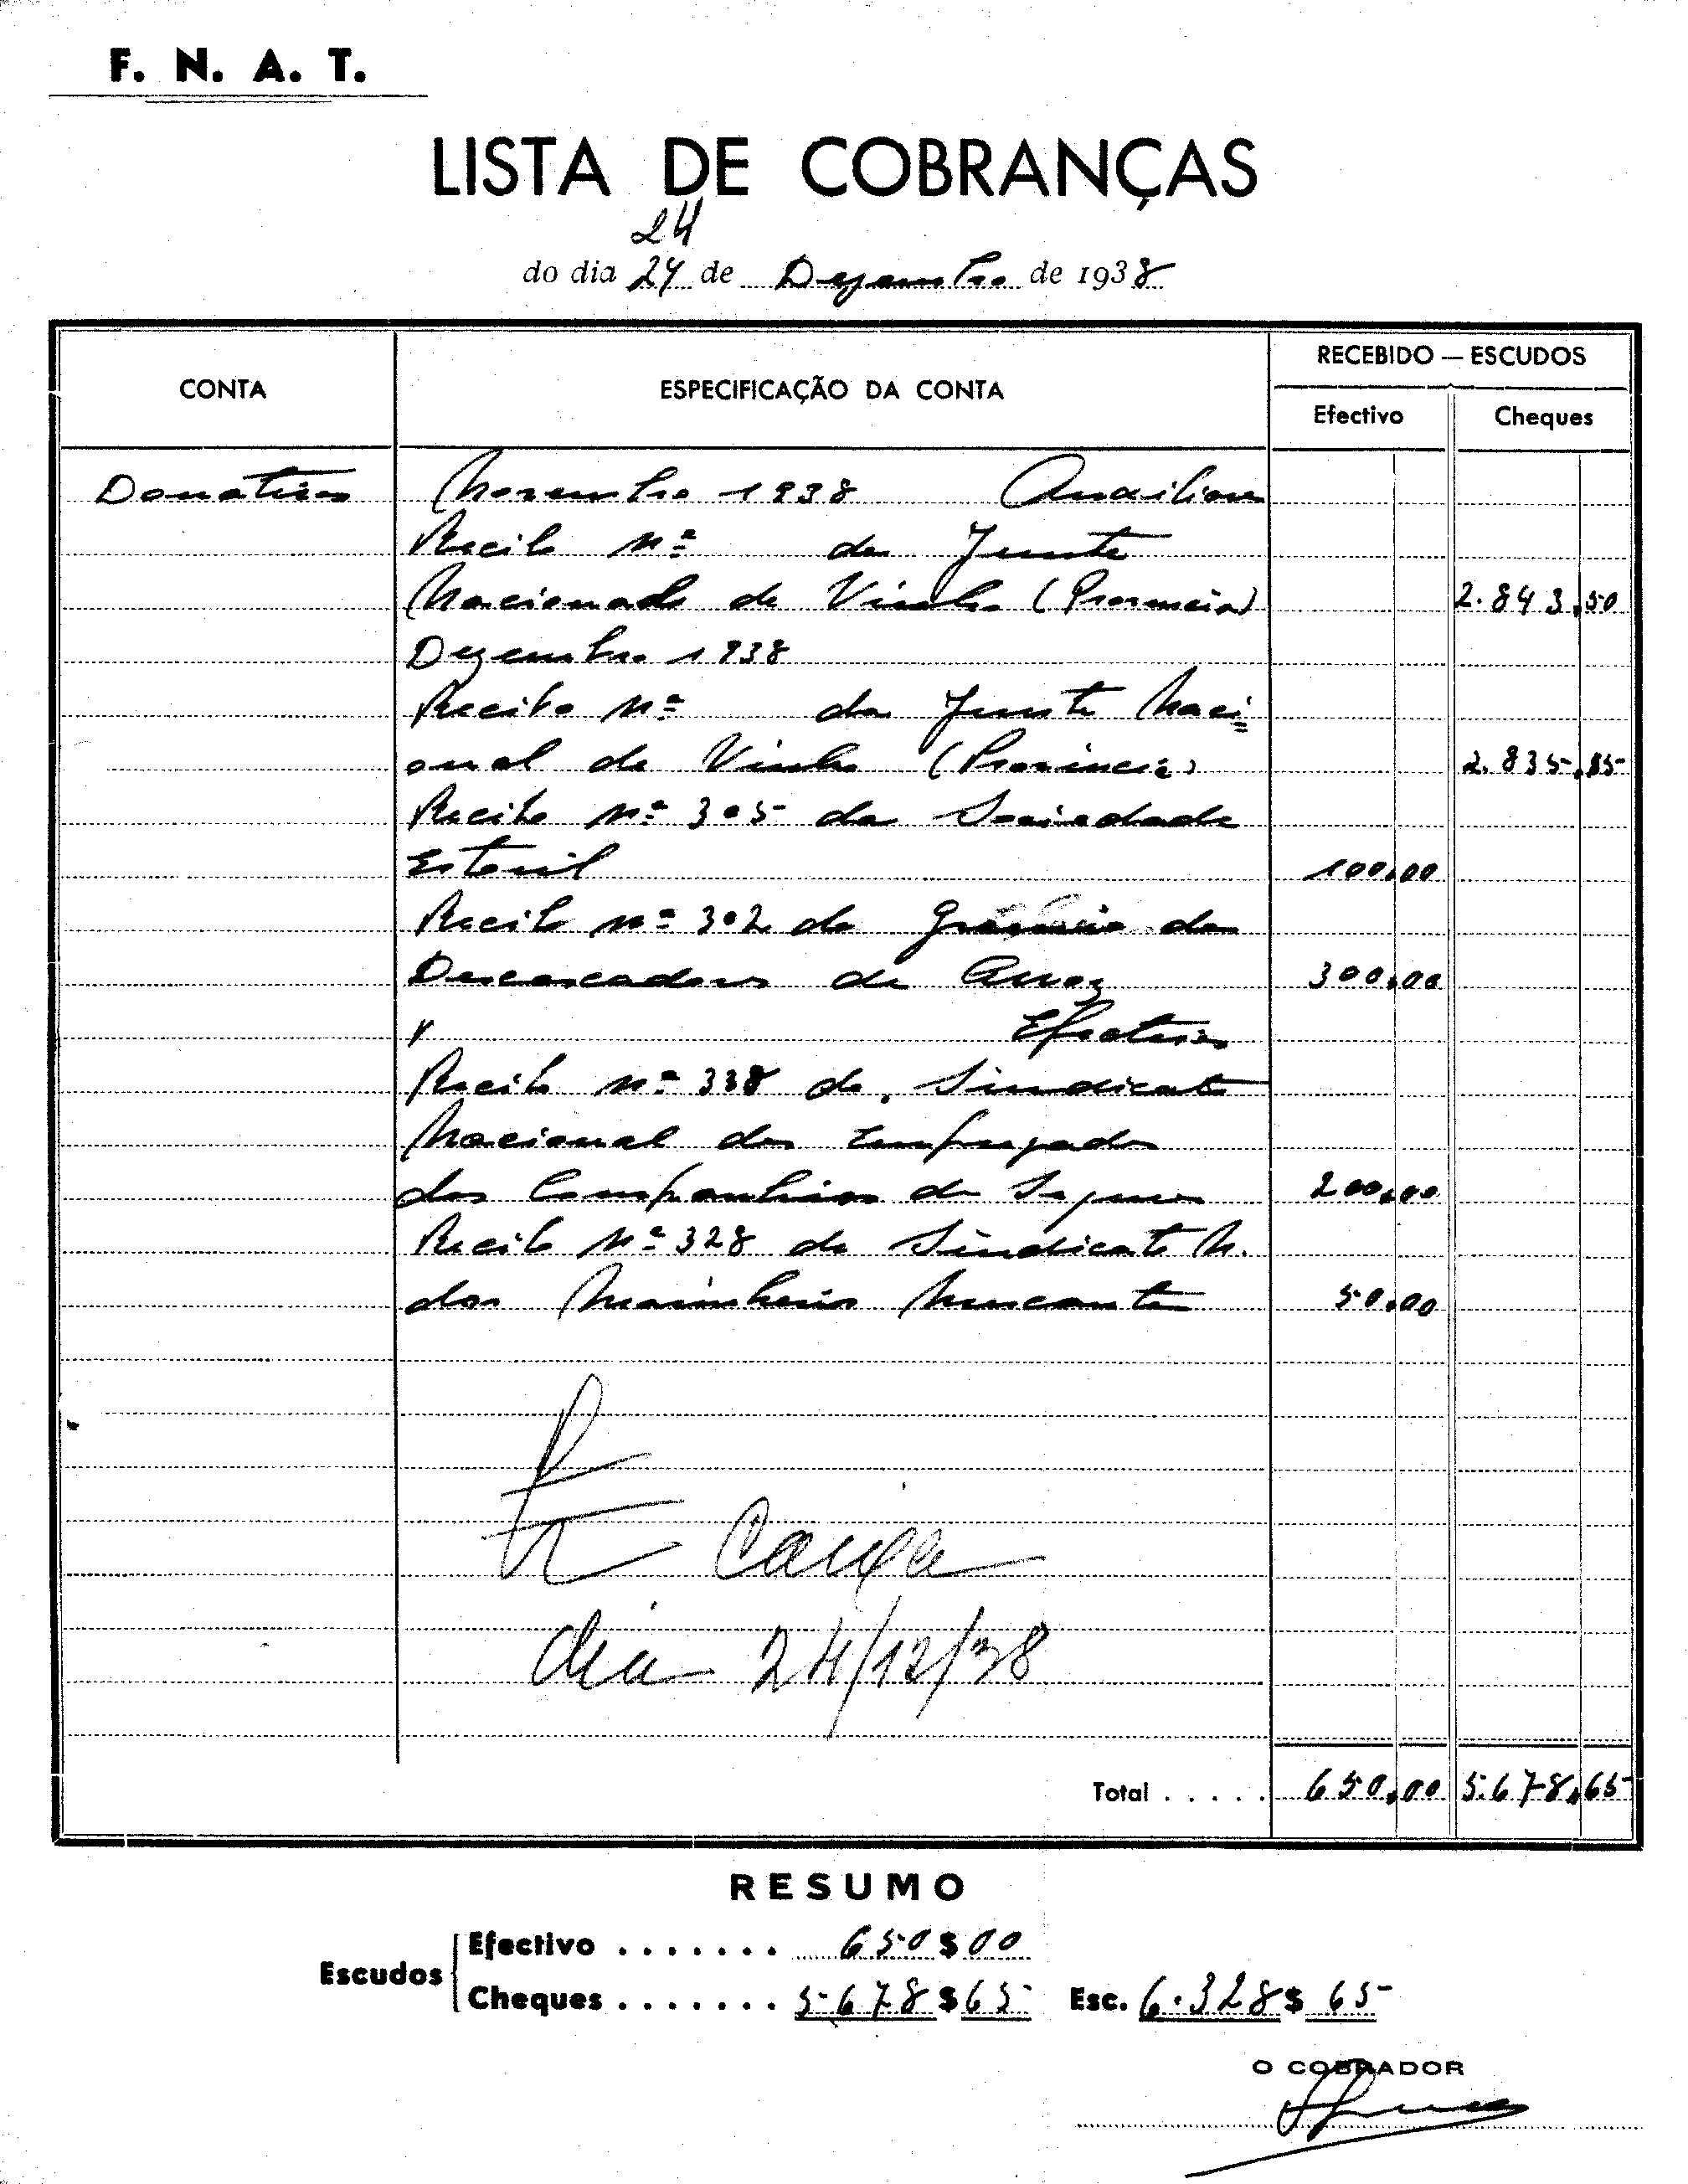 F. N. A. T.
LISTA DE COBRANÇAS
24
do dia 24 de Dezembro de 1938
CONTA
ESPECIFICAÇÃO DA CONTA
RECEBIDO — ESCUDOS
Efectivo
Cheques
Donativos Novembro 1938 Auxiliares
Recibo Nº da Junta
Nacional de Vinho (Provincia) 2.843,50
Dezembro 1938
Recibo Nº da Junta Naci=
onal de Vinho (Provincia) 2.835,15
Recibo Nº 305 da Sociedade
Estoril 100,00
Recibo nº 302 do Grémio dos
Descascadores de Arroz 300,00
Efectivos
Recibo nº 338 do Sindicato
Nacional dos Empregados
das Companhias de Seguros 200,00
Recibo Nº 328 do Sindicato N.
dos Marinheiros Mercantes 50,00
Caixa
dia 24/12/38
Total . . . . . 650,00 5.678,65
RESUMO
Escudos
Efectivo . . . . . . . 650$00
Cheques . . . . . . . 5678$65 Esc. 6.328$65
O COBRADOR